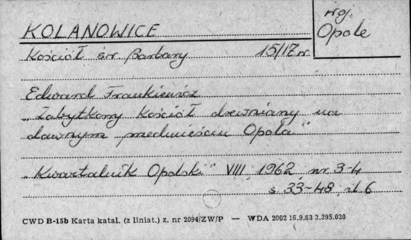 KOLANOWICE
woj.
Opole
Kościół św. Barbary 15/17 w.
Edward Frankiewicz
"Zabytkowy kościół drewniany na
dawnym przedmieściu Opola"
"Kwartalnik Opolski" VIII, 1962, nr 3-4
s. 33-48, il. 6
CWD B-15b Karta katal. (z liniat.) z. nr 2094/ZW/P — WDA 2002 16.9.63 3.295.020